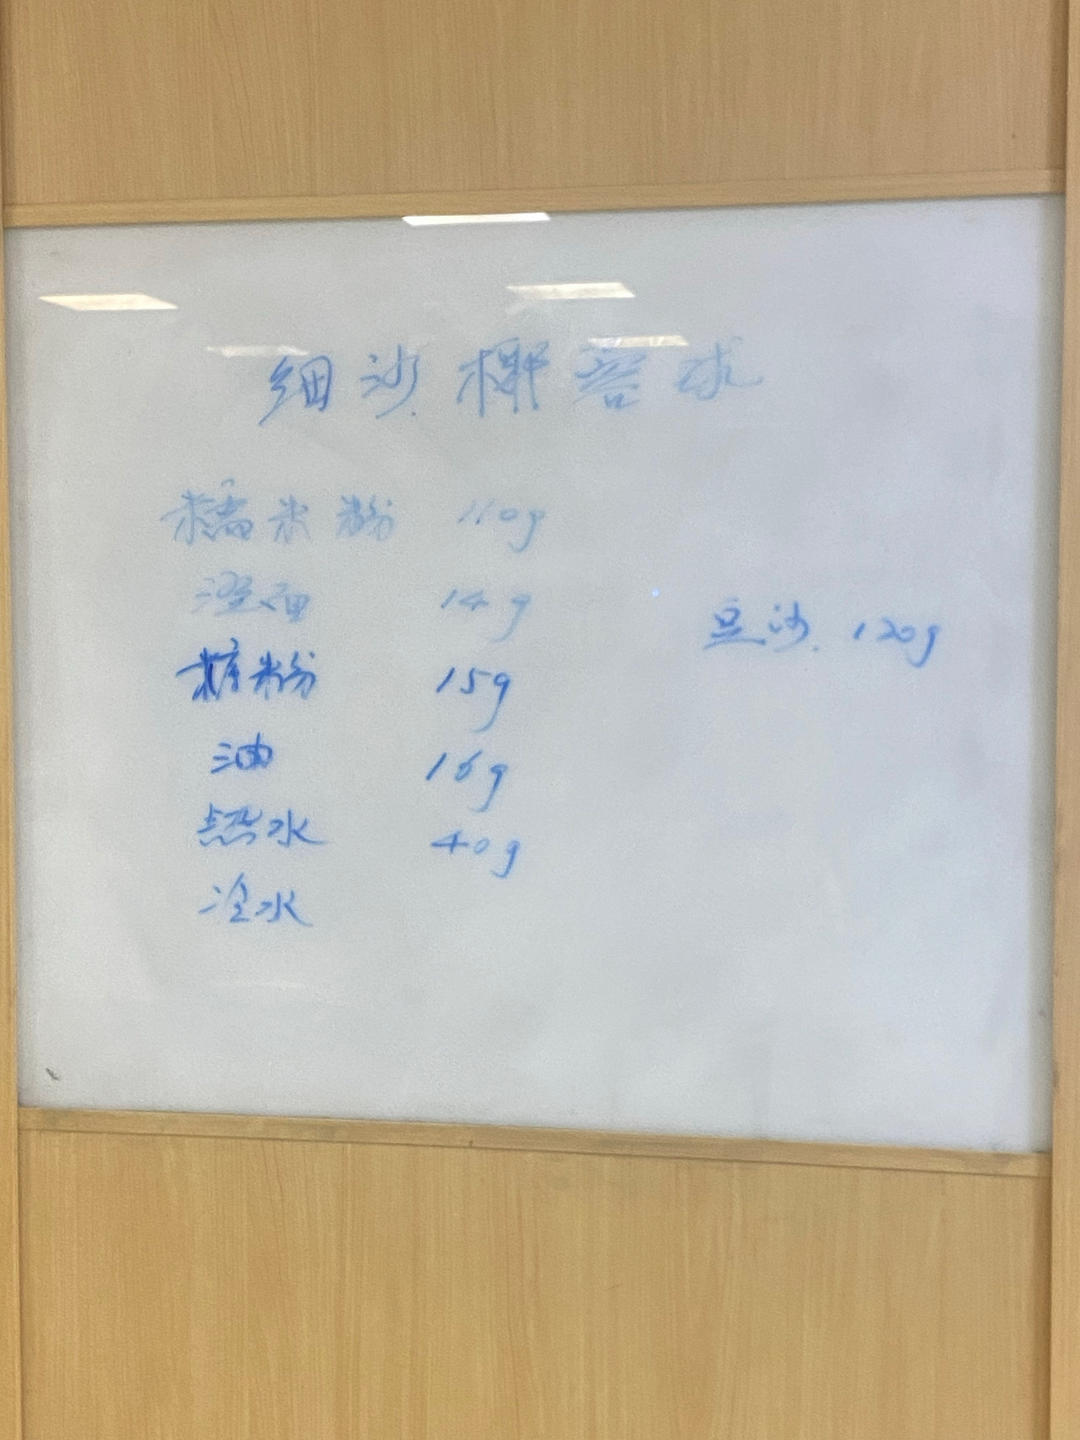 细沙椰蓉球
糯米粉 110g
澄面 14g
糖粉 15g
油 16g
热水 40g
冷水
豆沙. 120g